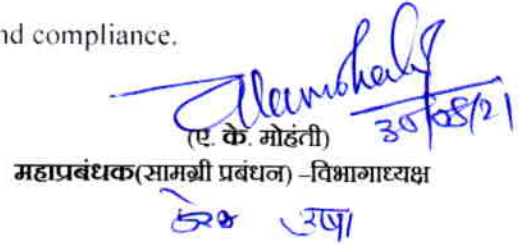 nd compliance.
30/08/21
(ए. के. मोहंती)
महाप्रबंधक(सामग्री प्रबंधन) –विभागाध्यक्ष
उषा